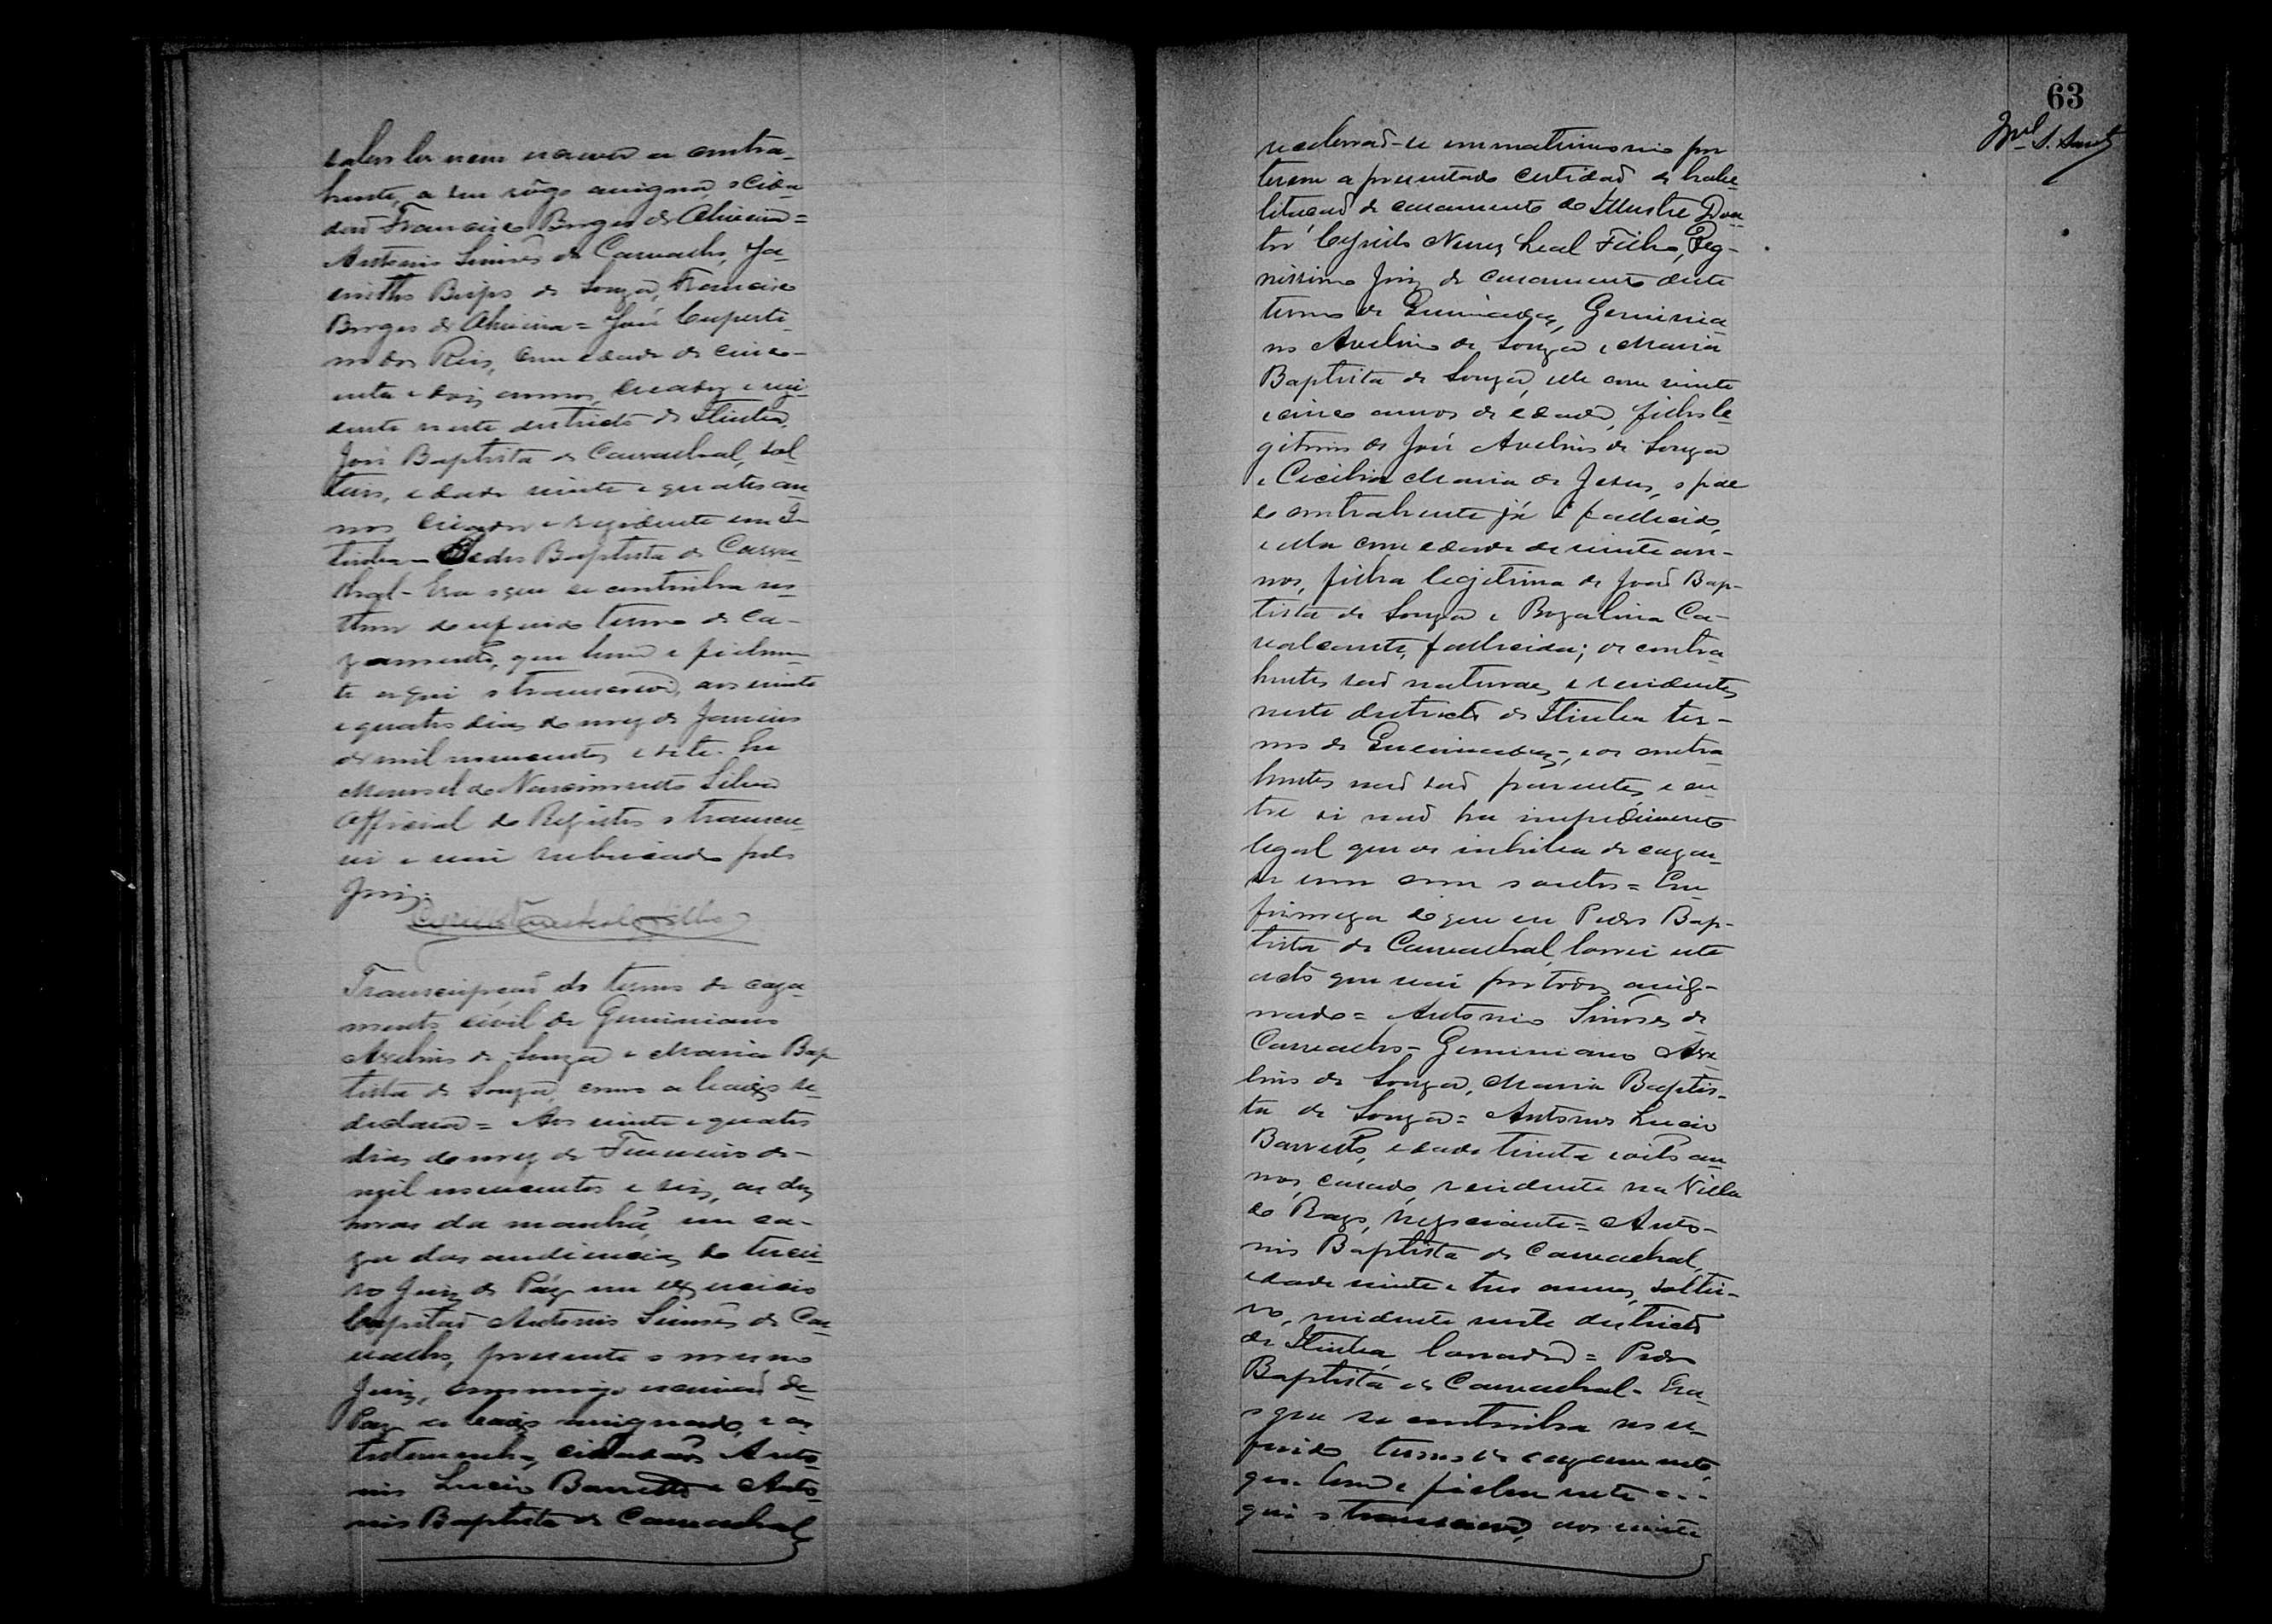 saber ler nem escrever a contra-
hente, a seu rogo assigna o cida-
dão Francisco Borges de Oliveira =
Antonio Simões de Carvalho, Ja-
cintho Borges de Souza, Francisco
Borges de Oliveira = José Cuperti-
no dos Reis, com edade de cinco-
enta e dois annos, creador e resi-
dente neste districto de Itiuba,
José Baptista de Carvalhal, sol-
teiro, edade vinte e quatro an-
nos creador e rezidente em I-
tiuba - Pedro Baptista de Carva-
lhal - Era o que se continha no
theor do referido termo de ca-
zamento, que bem e fielmen-
te aqui o transcrevi, aos vinte
e quatro dias do mez de Janeiro
de mil novecentos e sete. Eu
Manoel do Nascimento Silva
Official do Registro o transcre-
vi e vai rubricado pelo
Juiz.
Transcripção do termo de caza-
mento civil de Geminiano
Avelino de Souza e Maria Bap-
tista de Souza, como abaixo se
declara = Aos vinte e quatro
dias do mez de Fevereiro de
mil novecentos e seis, as dez
horas da manhã, em ca-
za das audiencias do tercei-
ro Juiz de Páz em exercicio
Capitão Antonio Simões de Car-
valho, presente o mesmo
Juiz, commigo escrivão de
Paz abaixo assignado, e as
testemunhas, cidadãos Anto-
nio Lucio Barretto e Anto-
nio Baptista de Carvalhal
63
receberão-se em matrimonio por
terem apresentado certidão de habe-
litação de casamento do Illustre Dou-
tor Cyrillo Nunes Leal Filho, Deg-
nissimo Juiz de casamento deste
termo de Queimadas, Geminia-
no Avelino de Souza e Maria
Baptista de Souza, elle com vinte
e cinco annos de edade, filho le-
gitimo de José Avelino de Souza
e Cecilia Maria de Jesus, o pae
do contrahente já é fallecido,
e ella com edade de vinte an-
nos, filha legitima de João Bap-
tista de Souza e Rozalina Ca-
valcante, fallecida; os contra-
hentes são naturaes e rezidentes
neste districto de Itiuba ter-
mo de Queimadas, e os contra-
hentes não são parentes, e en-
tre si não ha impedimento
legal que os inhiba de cazar-
se um com o outro = Em
firmeza do que eu Pedro Bap-
tista de Carvalhal, lavrei este
acto que vai por todos assig-
nado = Antonio Simões de
Carvalho - Geminiano Ave-
lino de Souza, Maria Baptis-
ta de Souza = Antonio Lucio
Barretto, edade trinta e oito an-
nos, casado, rezidente na Villa
do Razo, negociante = Anto-
nio Baptista de Carvalhal,
edade vinte e tres annos, soltei-
ro, rezidente neste districto
de Itiuba, lavrador = Pedro
Baptista de Carvalhal - Era
o que se continha no re-
ferido termo de cazamento,
que bem e fielmente a-
qui o transcrevi, aos vinte